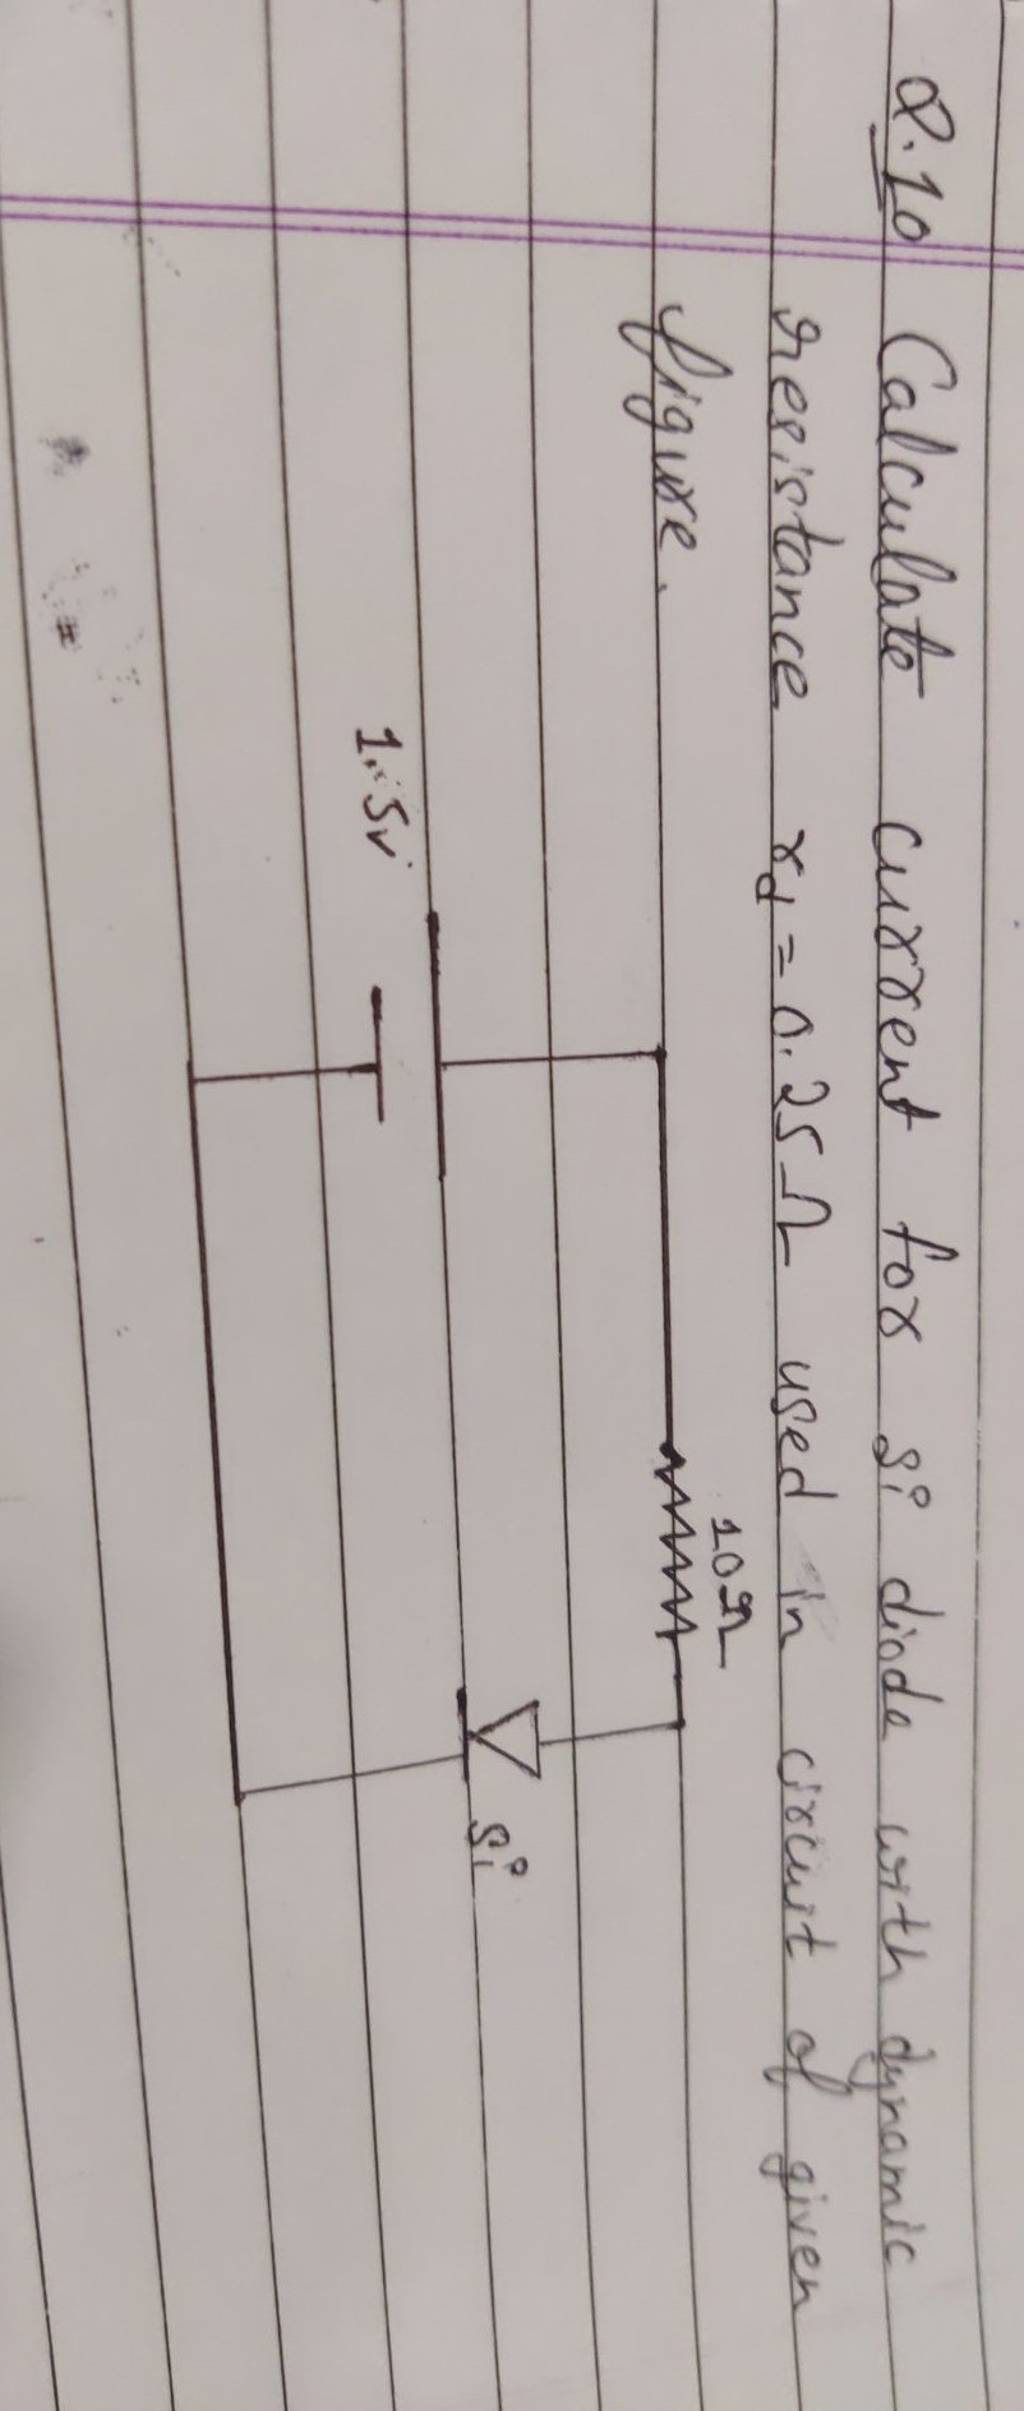 Q.10 Calculate current for Si diode with dynamic
resistance rd = 0.25Ω used in circuit of given
figure.
10Ω
1.5v
Si